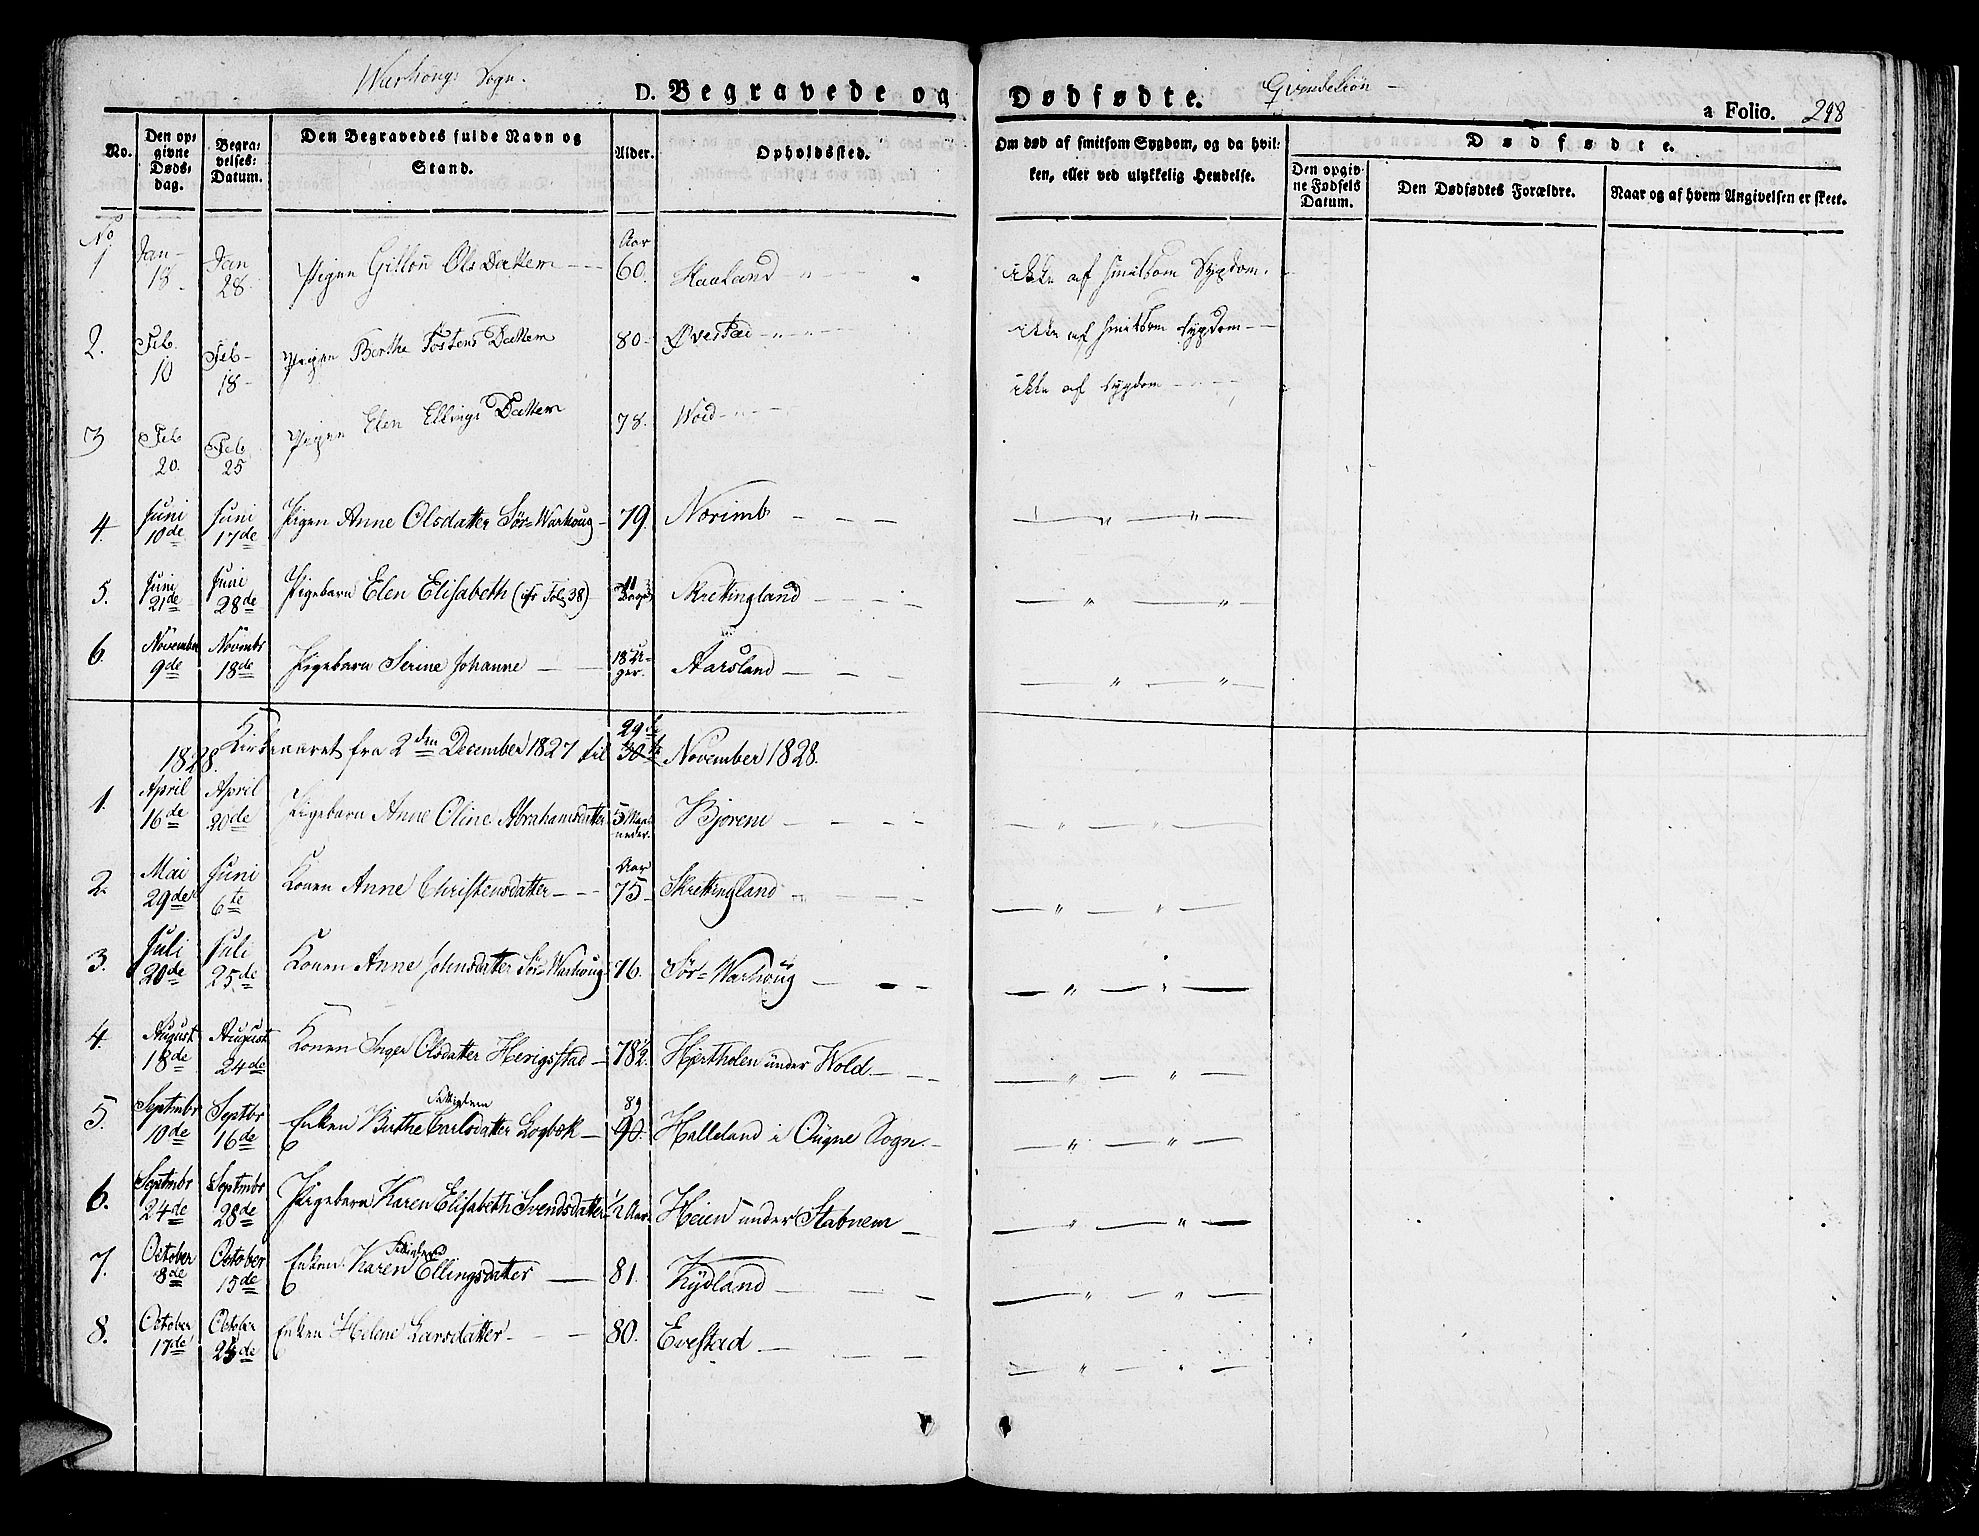 Warhoug Sogn.
D. Begravede og Dødfødte.
Qvindekiøn –
a Folio. 298
No.
Den opgivne Dødsdag.
Begravelses-Datum.
Den Begravedes fulde Navn og Stand.
Alder.
Opholdssted.
Om død af smitsom Sygdom, og da hvilken, eller ved ulykkelig Hendelse.
Dødfødte.
Den opgivne Fødsels Datum.
Den Dødfødtes Forældre.
Naar og af hvem Angivelsen er skeet.
No 1 Jan– 18 Jan 28 Pigen Olsdatter Aar 60. Haaland ikke af smitsom Sygdom.
2. Feb. 10 Feb– 18– Pigen Berthe Tostens Datter 80– ikke af smitsom Sygdom
3 Feb 20. Feb 25 Pigen Elen Ellings Datter 78. Wold ikke af Sygdom
4. Juni 10de Juni 17de Pigen Anne Olsdatter Sør-Warhoug 79. – „ – „ –
5. Juni 21de Juni 28de Pigebarn Elen Elisabeth 11 Dage Skrettingland – „ – „
6. November 9de Novembr 18de Pigebarn Serine Johanne 18 Uger. Aarsland – „ – „
1828. Kirkeaaret fra 2den December 1827 til 29de November 1828.
1. April 16de April 20de Pigebarn Anne Oline Abrahamsdatter 5 Maaneder. Bjorem – „ – „ –
2. Mai 29de Juni 6te Konen Anne Christensdatter Aar 75 Skrettingland – „ – „ –
3. Juli 20de Juli 25de Konen Anne Johnsdatter Sør-Warhoug 76. Sør-Warhoug – „ – „ –
4. August 18de August 24de Konen Inger Olsdatter Herigstad 78½ Hjertholen under Wold – „ – „ –
5. Septmbr 10de Septbr 16de Enken Birthe Carlsdatter 89 90. Halleland i Ougne Sogn. – „ – „ –
6. Septmbr 24de Septmbr 28de Pigebarn Karen Elisabeth Svendsdatter ½ Aar Heien under Stabnem – „ – „ –
7. October 8de October 15de Enken Karen Ellingsdatter 81. Kydland – „ – „ –
8. October 17de October 25de Enken Helene Larsdatter 80. Evestad – „ – „ –